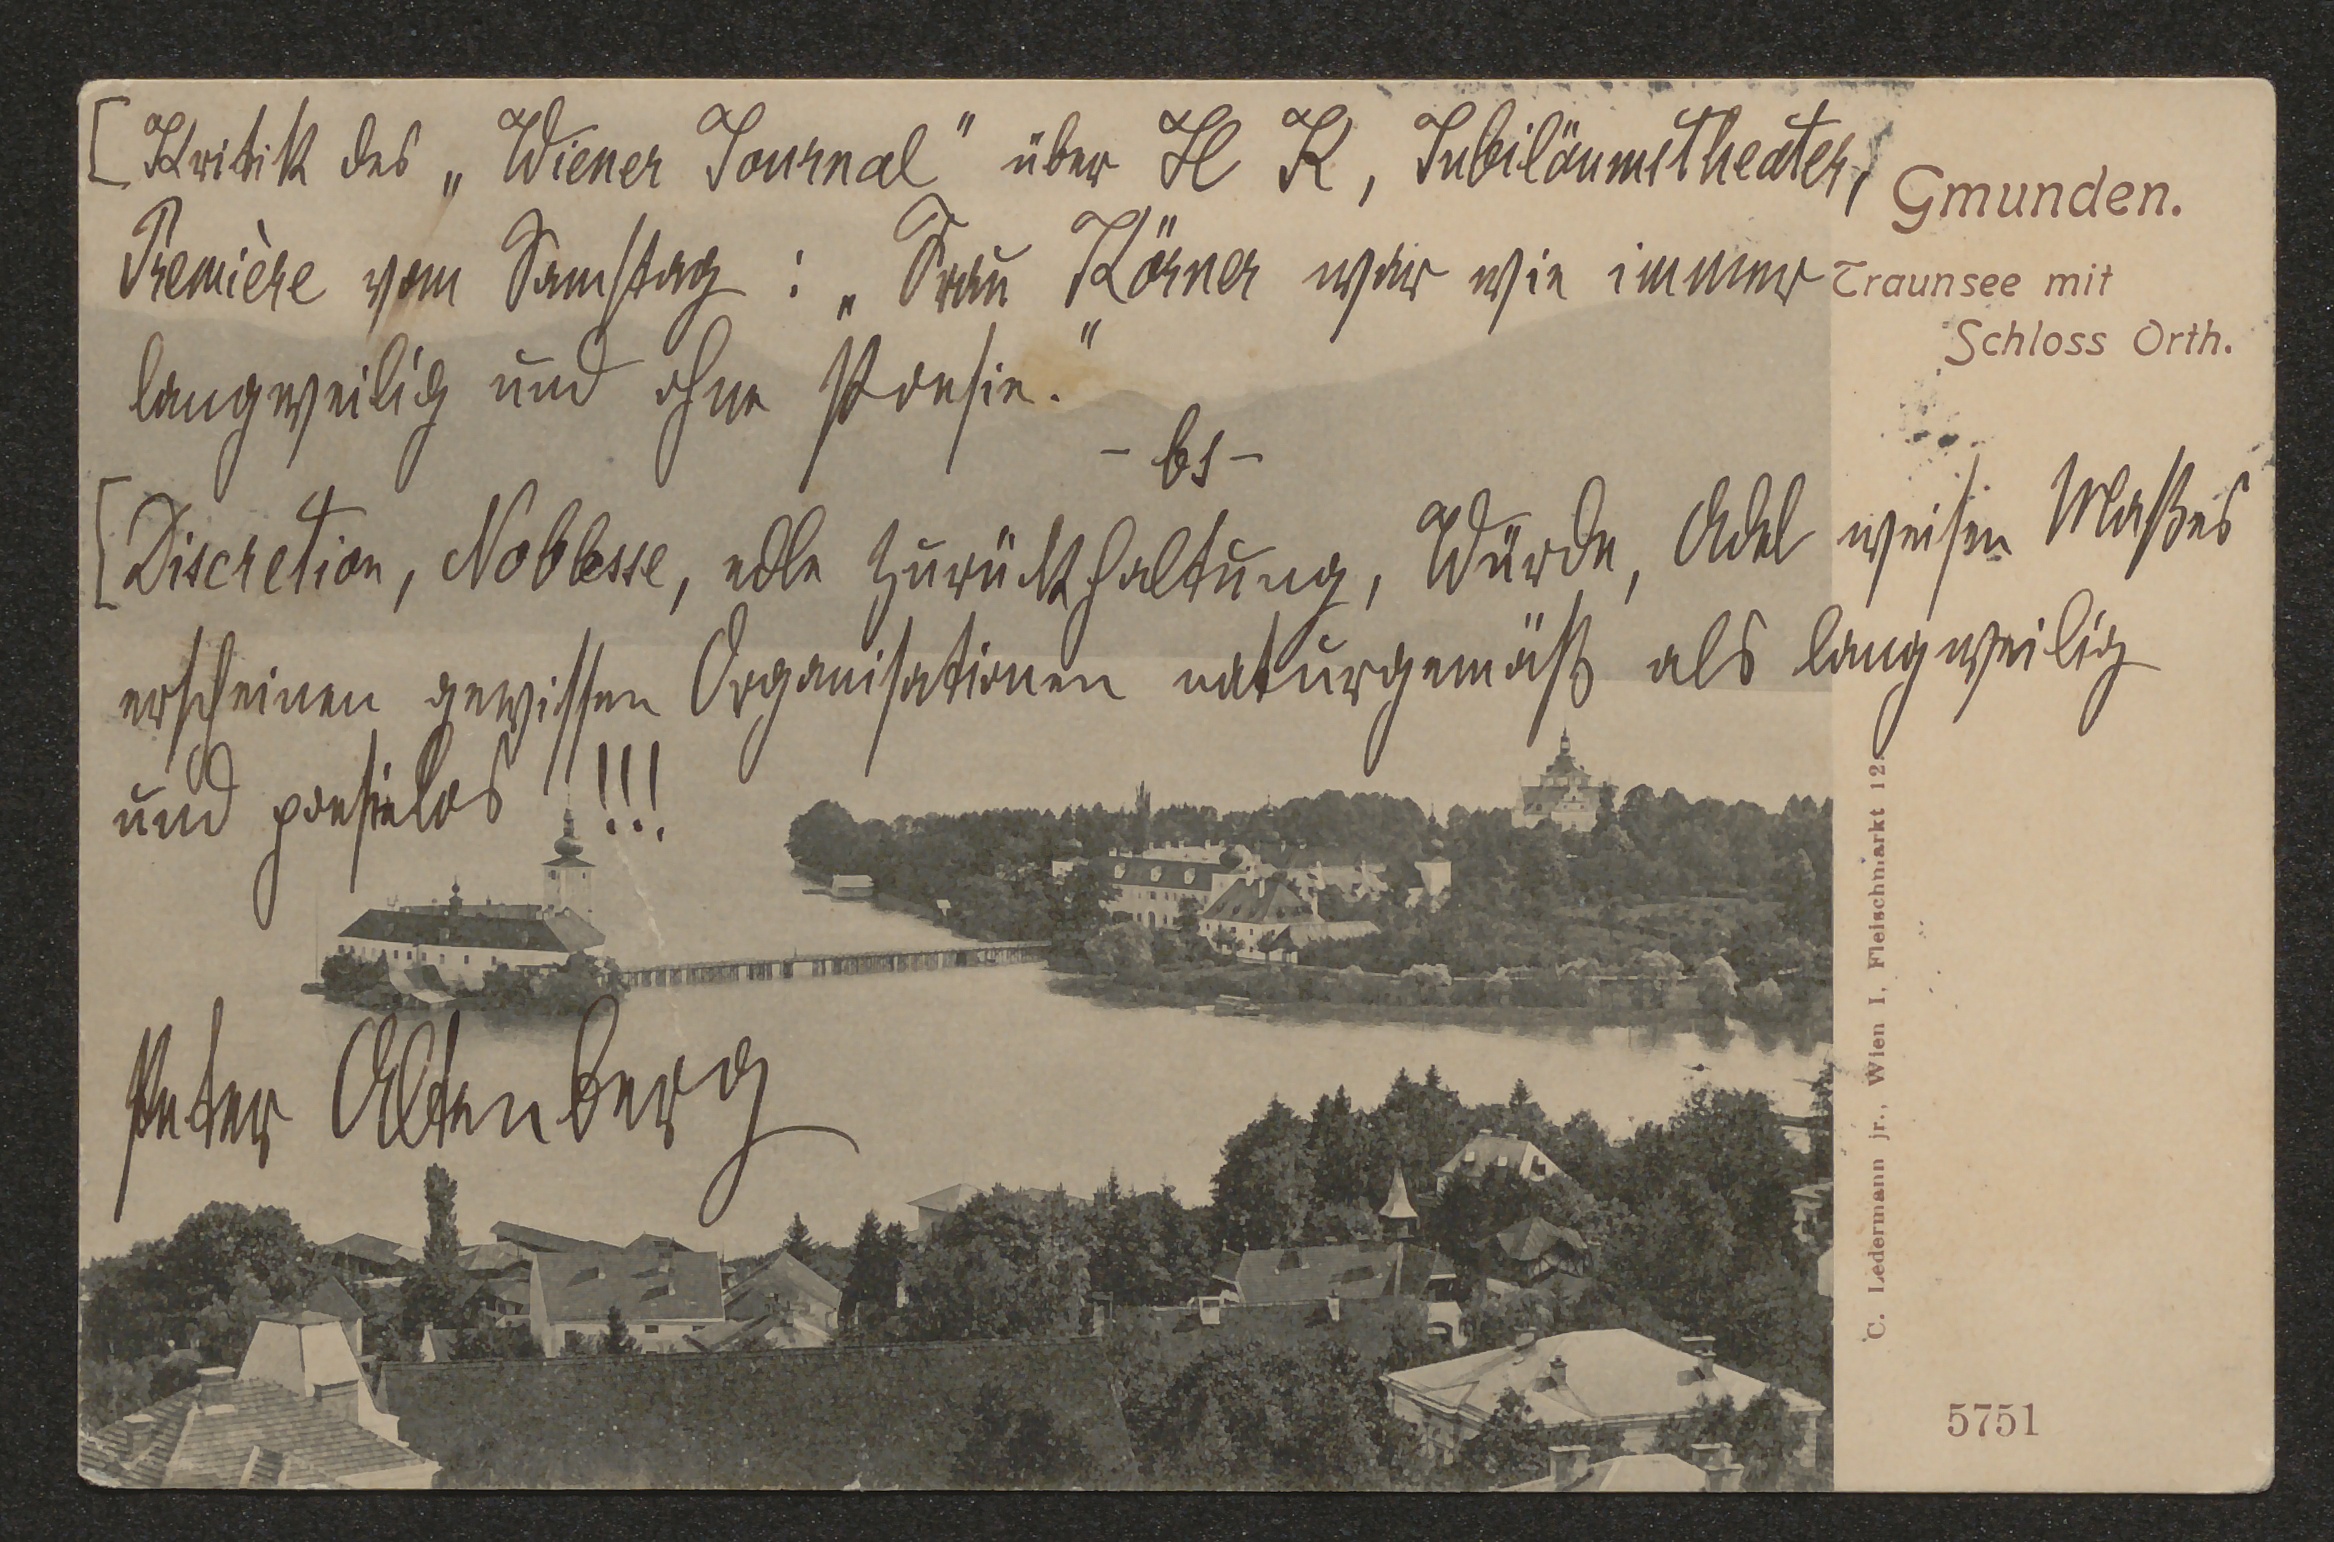 [Kritik des „Wiener Journal" über H K, Jubiläumstheater,
Première vom Samstag : „Frau Körner war wie immer
langweilig und ohne Poesie."
- bs -
[Discretion, Noblesse, edle Zurückhaltung, Würde, Adel weisen Maßes
erscheinen gewissen Organisationen naturgemäß als langweilig
und poesielos !!!
Peter Altenberg
Gmunden.
Traunsee mit
Schloss Orth.
C. Ledermann jr., Wien I, Fleischmarkt 12.
5751